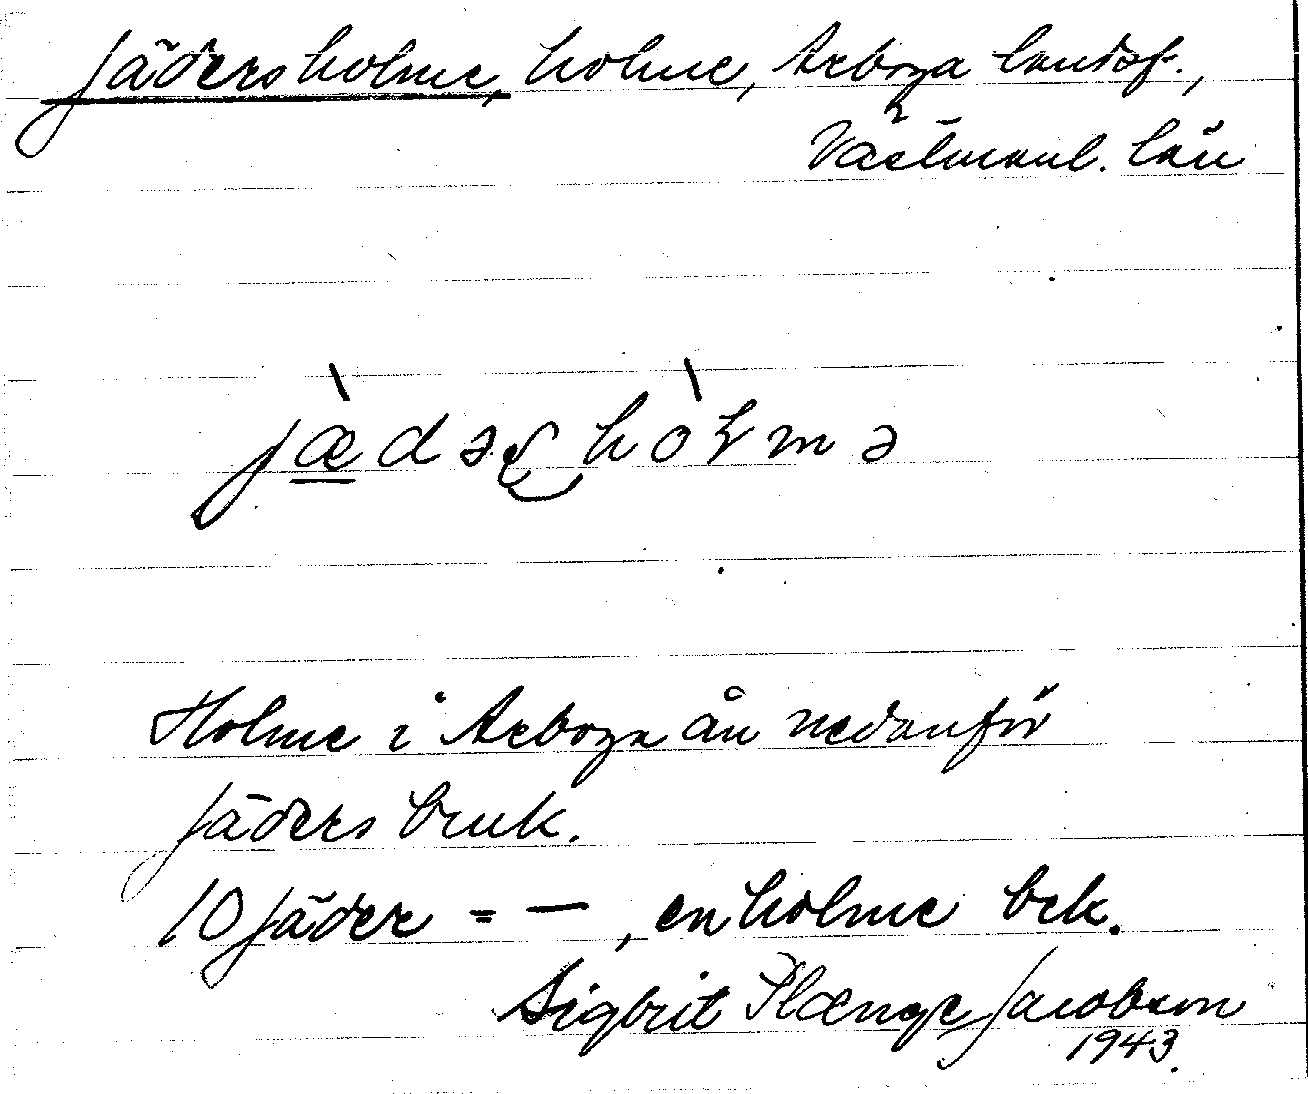 Jädersholme, holme, Arboga landsf.,
Västmanl. län
jæ̀dəʂhòɽmə
Holme i Arbogaån nedanför
Jäders bruk.
10 Jäder = — , en holme bek.
Sigbrit Plænge Jacobson
1943.